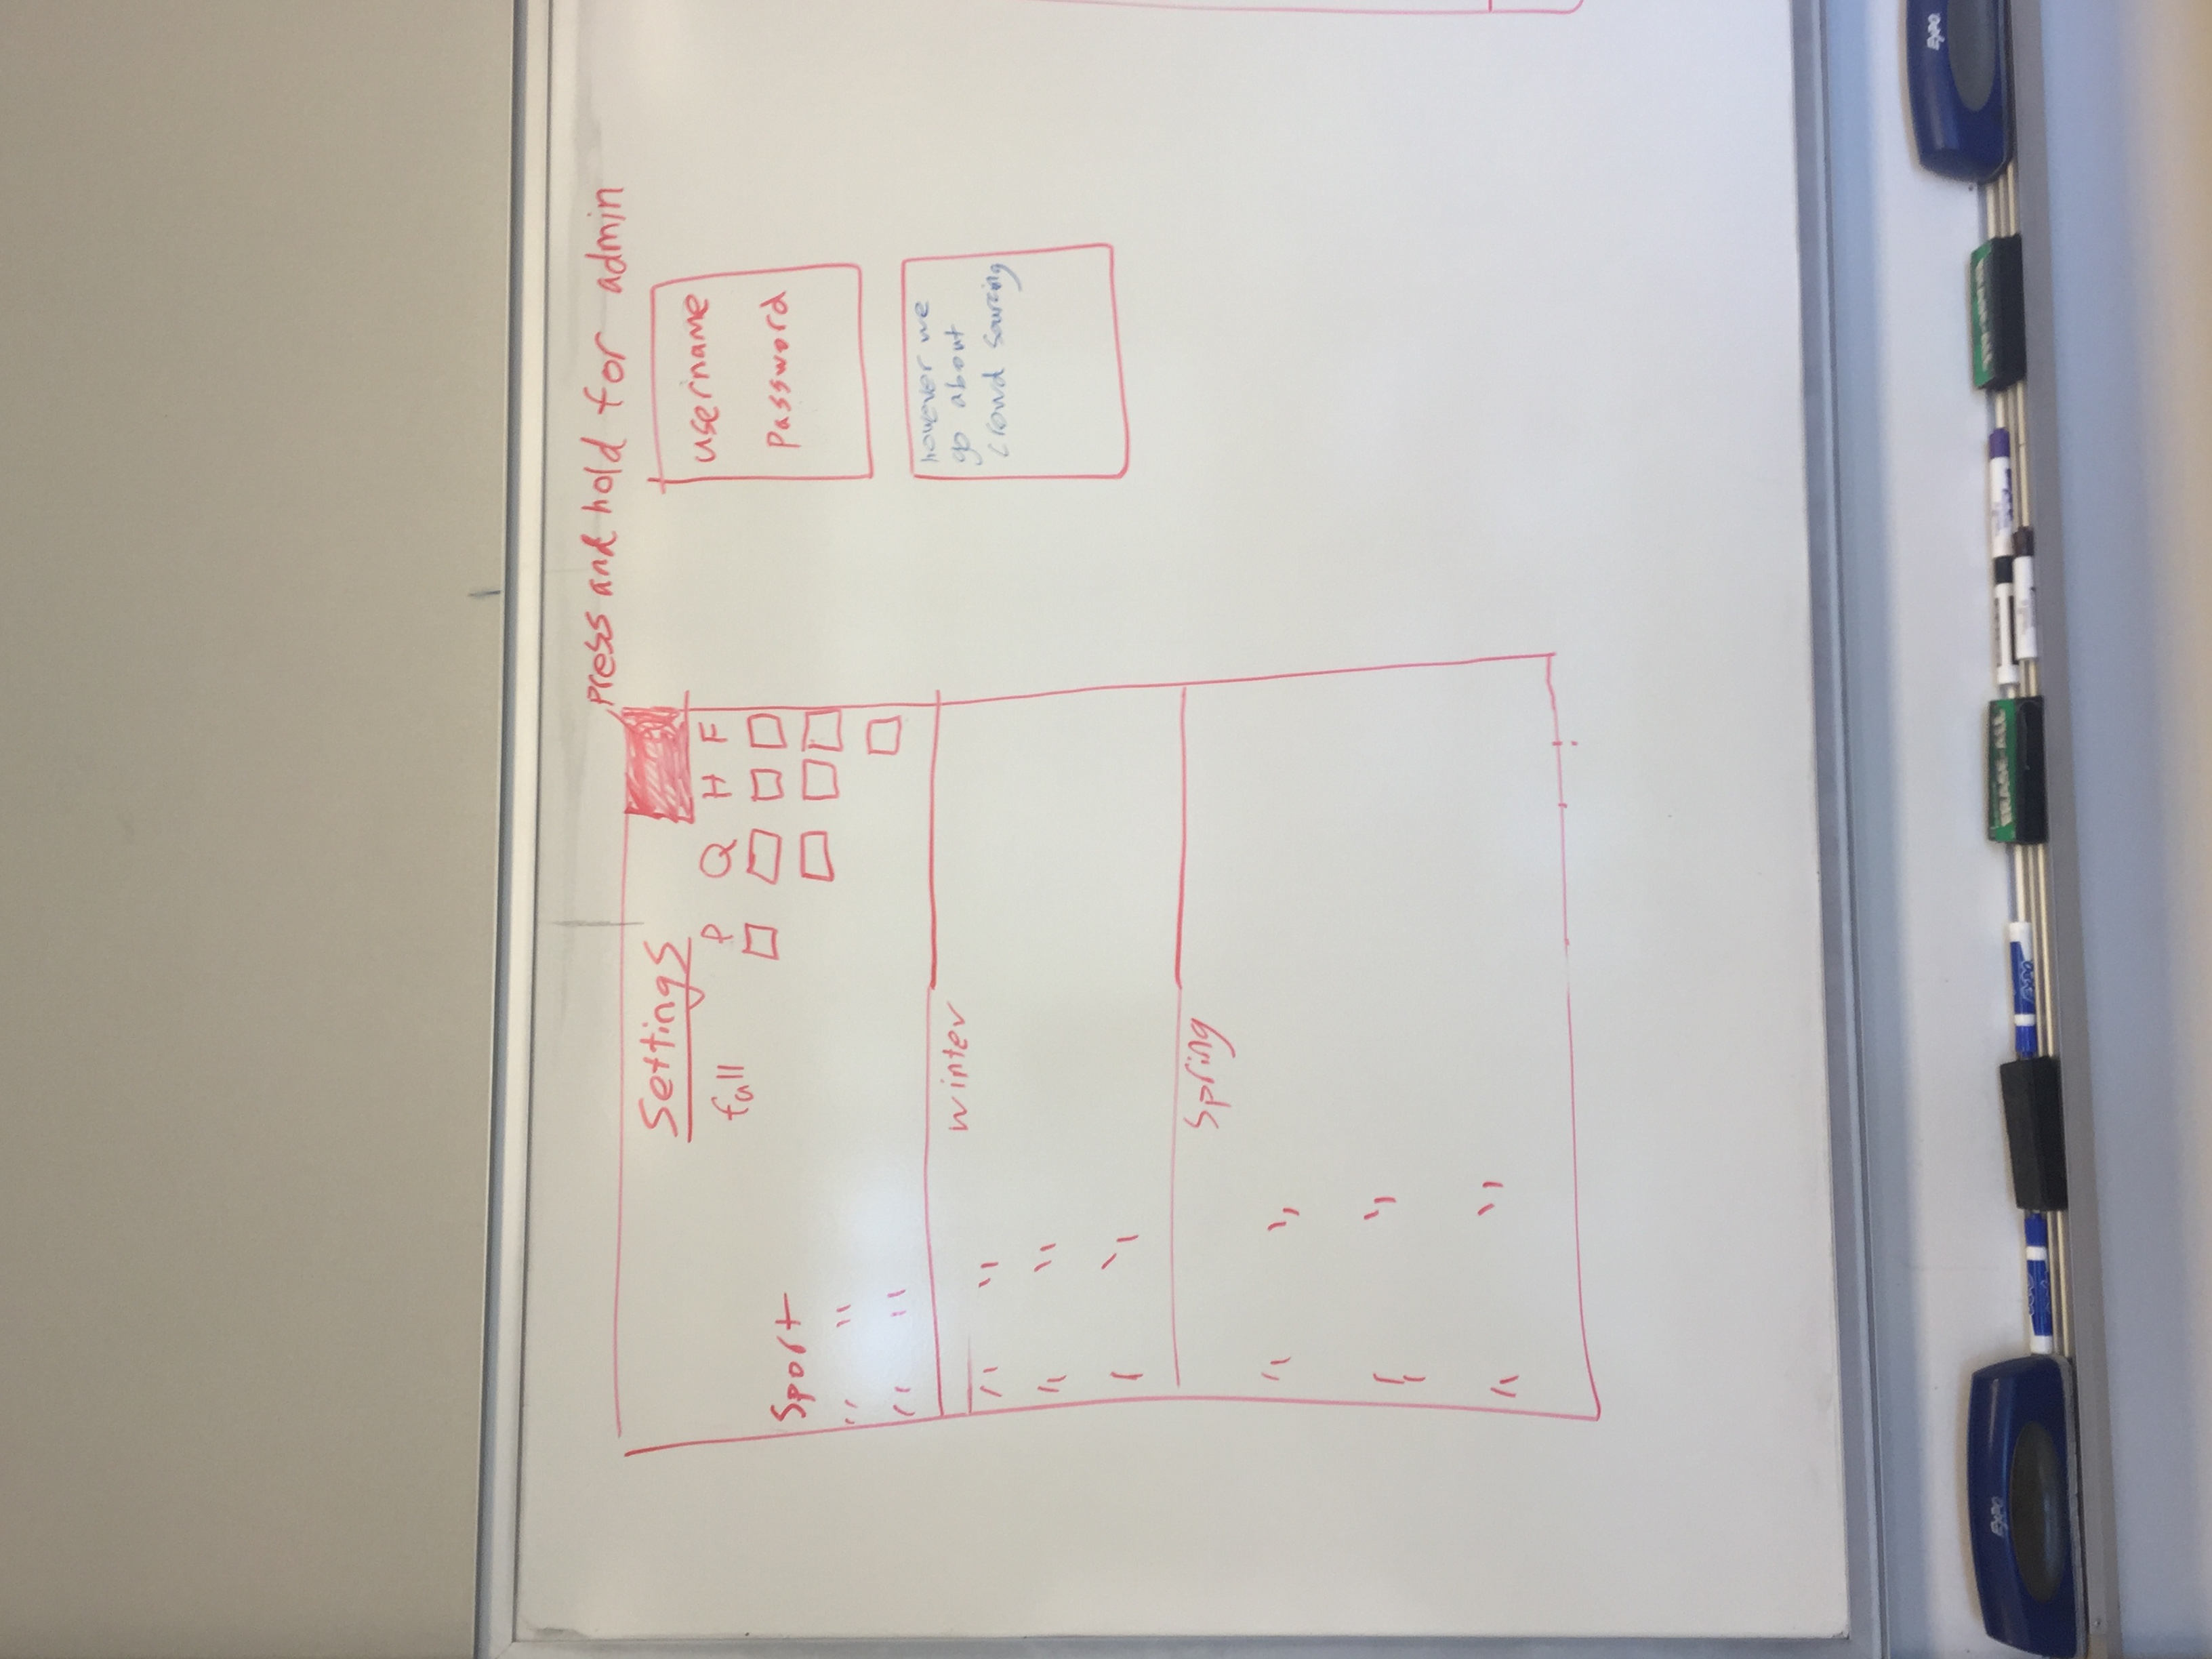 press and hold for admin
Settings
fall
P Q H F
Sport
" "
" "
winter
" "
" "
" "
Spring
" "
" "
" "
username
password
however we
go about
crowd sourcing
EXPO
EXPO
ERASE-ALL
EXPO